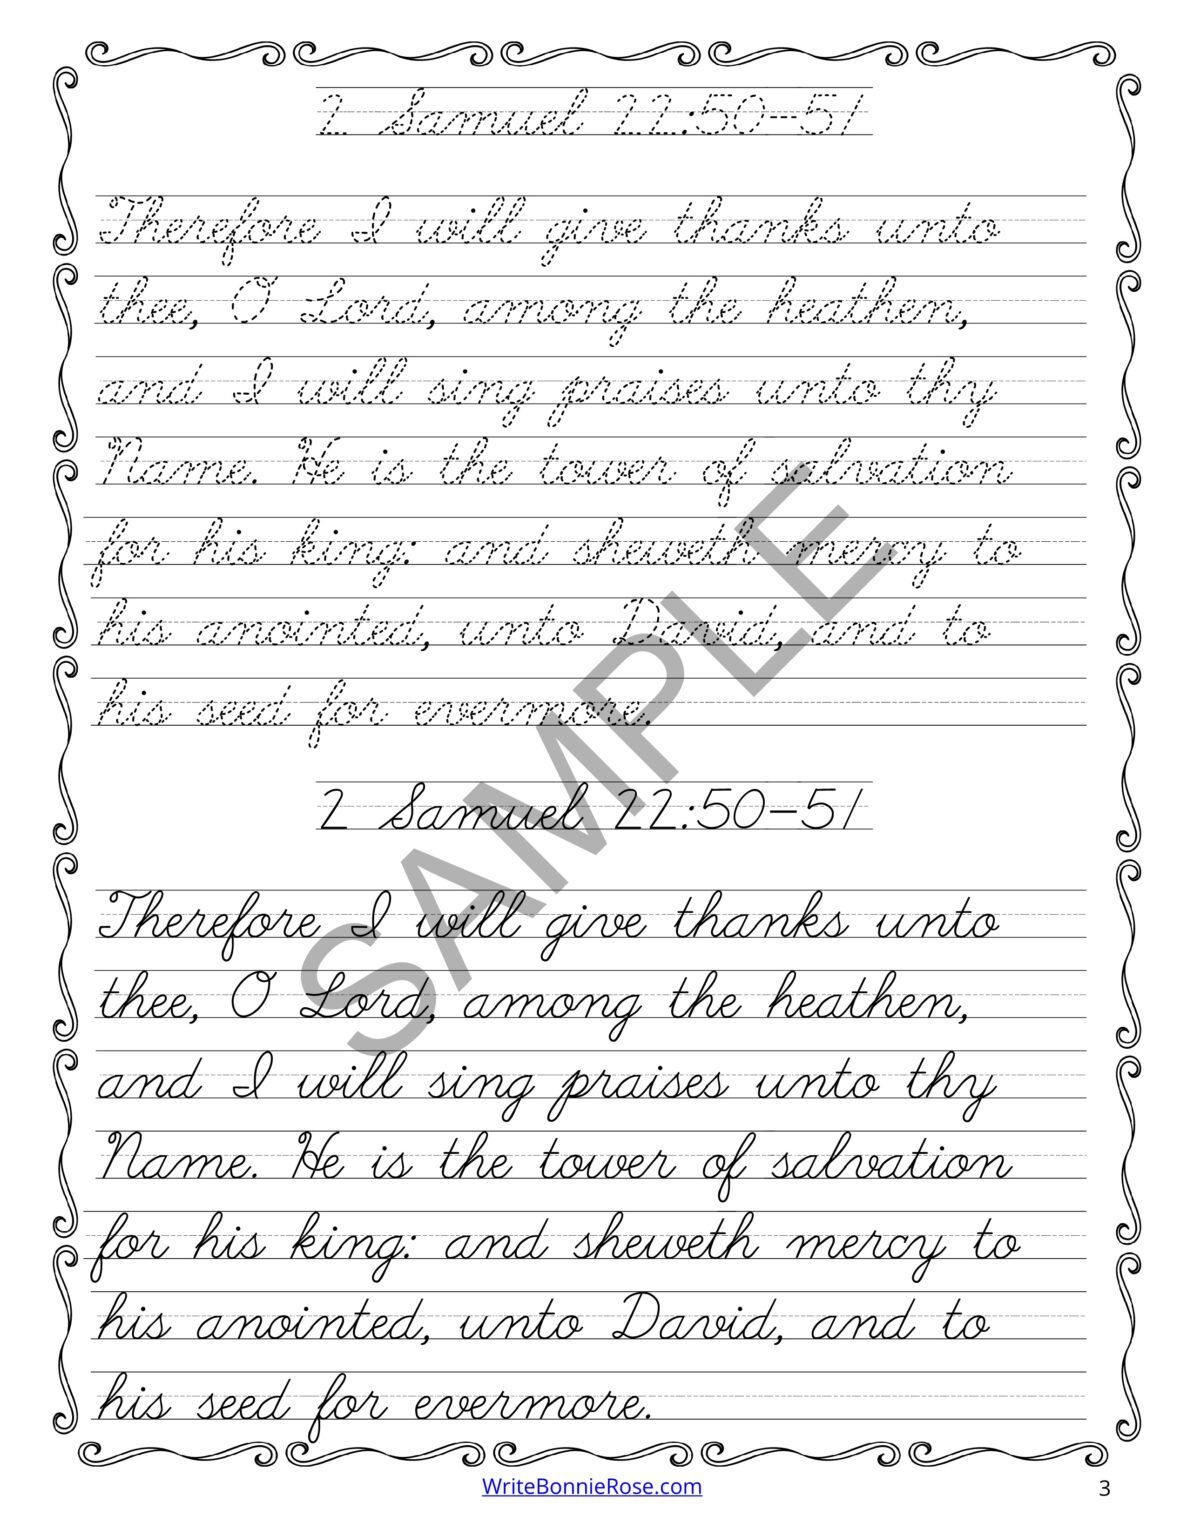 2 Samuel 22:50-51
Therefore I will give thanks unto
thee, O Lord, among the heathen,
and I will sing praises unto thy
Name. He is the tower of salvation
for his king: and sheweth mercy to
his anointed, unto David, and to
his seed for evermore.
2 Samuel 22:50-51
Therefore I will give thanks unto
thee, O Lord, among the heathen,
and I will sing praises unto thy
Name. He is the tower of salvation
for his king: and sheweth mercy to
his anointed, unto David, and to
his seed for evermore.
SAMPLE
WriteBonnieRose.com
3